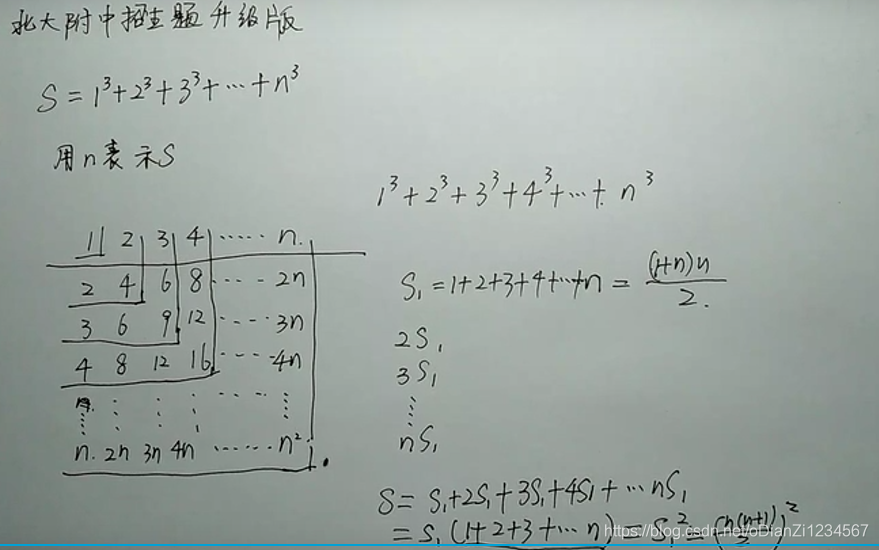 北大附中招生题升级版
S = 1³+2³+3³+⋯+n³
用n表示S
1 2 3 4 ⋯⋯ n.
2 4 6 8 ⋯⋯ 2n
3 6 9 12 ⋯⋯ 3n
4 8 12 16 ⋯⋯ 4n
⋮ ⋮ ⋮ ⋮ ⋯⋯ ⋮
n. 2n 3n 4n ⋯⋯ n²
1³+2³+3³+4³+⋯+ n³
S₁ = 1+2+3+4+⋯+n = (1+n)n / 2.
2S₁
3S₁
⋮
nS₁
S = S₁+2S₁+3S₁+4S₁+⋯nS₁
= S₁(1+2+3+⋯n) = S₁² = (n(n+1)/2)²
https://blog.csdn.net/oDianZi1234567